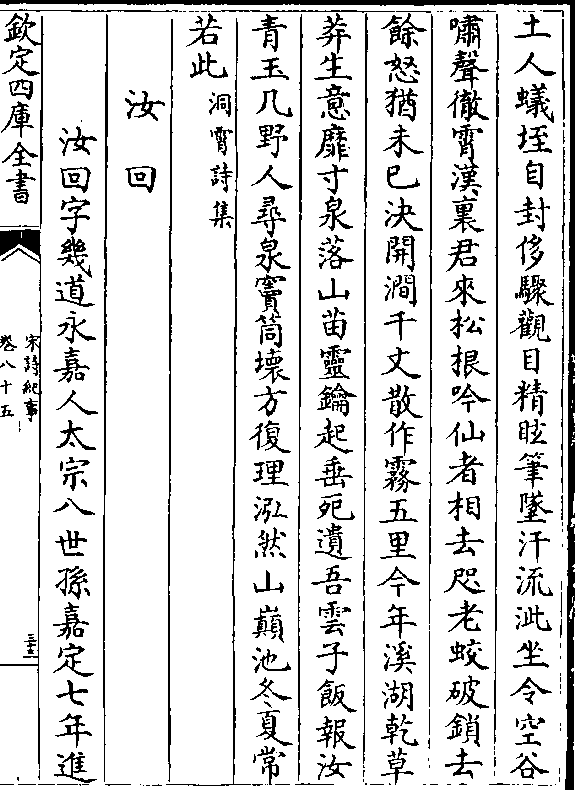 土人蟻垤自封侈驟觀目精眩筆墜汗流泚坐令空谷
嘯聲徹霄漢裏君來松根吟仙者相去咫老蛟破鎖去
餘怒猶未已決開澗千丈散作霧五里今年溪湖乾草
莽生意靡寸泉落山苗靈鑰起垂死遺吾雲子飯報汝
青玉几野人尋泉竇筒壞方復理泓然山巔池冬夏常
若此 洞霄詩集
汝回
汝回字幾道永嘉人太宗八世孫嘉定七年進
欽定四庫全書
宋詩紀事
卷八十五
三十三